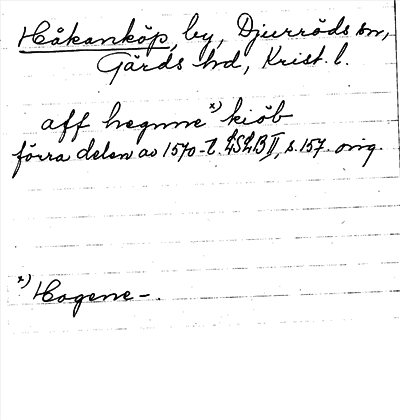 Håkanköp, by, Djurröds sn,
Gärds hd, Krist. l.
aff hegnne x) kiöb
förra delen av 1570-t. LSLB II, s. 157. orig.
x) Hogene-.